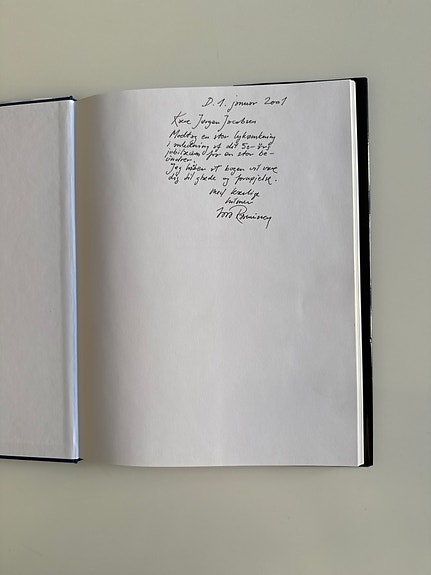 D. 1. januar 2001
Kære Jørgen Jacobsen
Modtag en stor lykønskning
i anledning af dit 50-års
jubilæum fra en stor be-
undrer.
Jeg håber at bogen vil være
dig til glæde og fornøjelse.
Med kærlig
hilsen